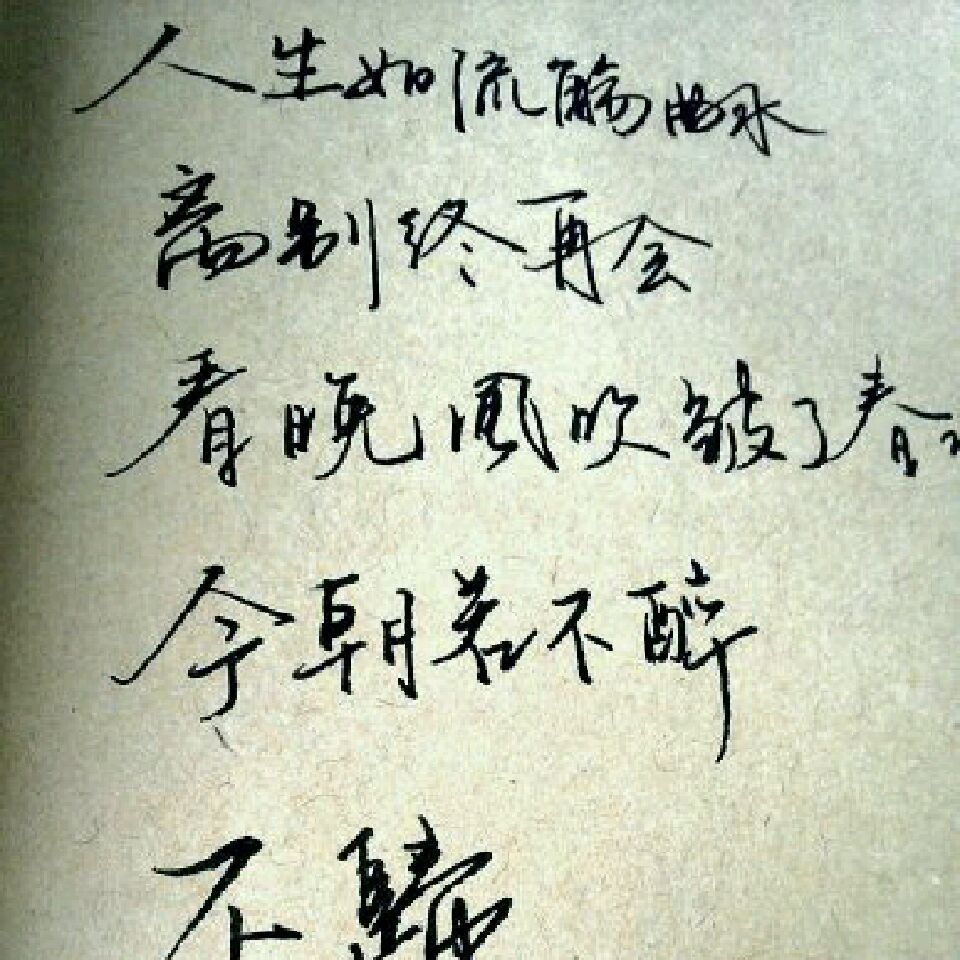 人生如流觞曲水
离别终再会
看晚风吹皱了春
今朝若不醉
不歸